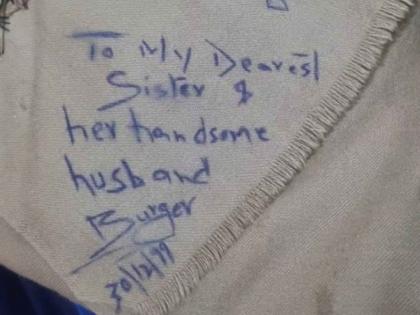 To My Dearest
Sister &
her handsome
husband
Burger
30/12/99